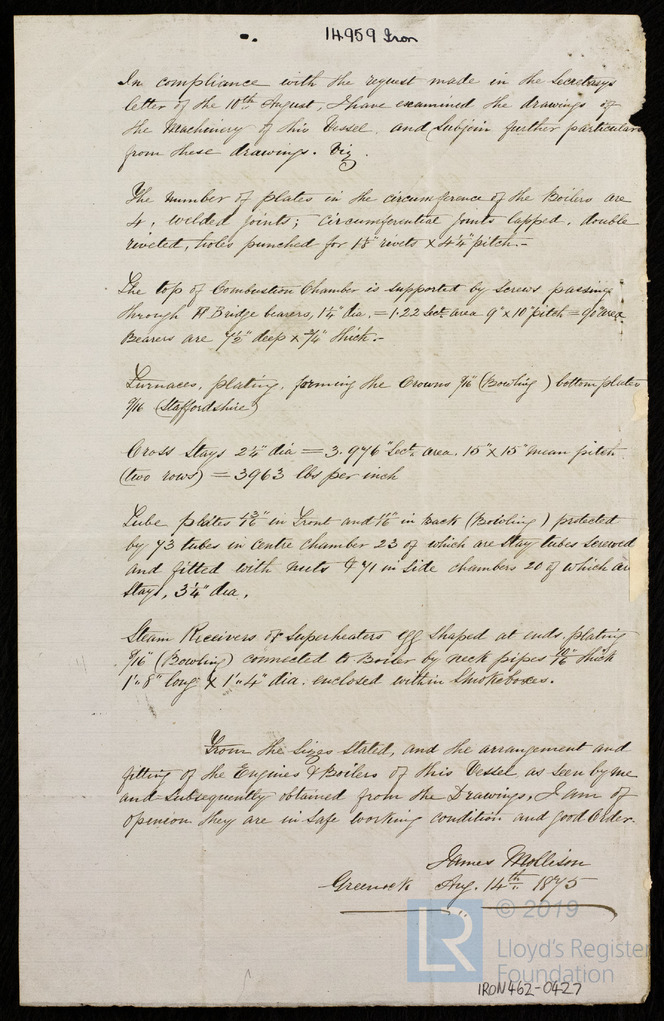 14959 Iron
In compliance with the request made in the Secretarys
letter of the 10th August, I have examined the drawings of
the Machinery of this Vessel, and subjoin further particulars
from these drawings. Viz.
The number of plates in the circumference of the Boilers are
4, welded joints; circumferential joints lapped, double
riveted, holes punched for rivets x 4¼" pitch.-
The top of Combustion Chamber is supported by Screws passing
through Bridge bearers, 1¼" dia. = 1.22 Sect. area 9" x 10" pitch = 90" area
Bearers are 7½" deep x ¾" thick.-
Furnaces, plating, forming the Crowns 7/16 (Bowling) bottom plates
9/16 (Staffordshire)
Cross Stays 2¼" dia = 3.976" Sect. area. 15" x 15" mean pitch
(two rows) = 3963 lbs per inch
Tube plates 13/16" in Front and 11/16" in Back (Bowling) protected
by 73 tubes in centre chamber 23 of which are Stay tubes screwed
and fitted with nuts & 71 in side chambers 20 of which are
stays, 3¼" dia.
Steam Receivers or Superheaters egg shaped at ends, plating
9/16" (Bowling) connected to Boiler by neck pipes 10/16" thick
1'.8" long x 1'.4" dia. enclosed within Smokeboxes.
From the sizes stated, and the arrangement and
fitting of the Engines & Boilers of this Vessel, as seen by me
and subsequently obtained from the Drawings, I am of
opinion they are in safe working condition and good order.
James Mollison
Greenock Aug. 14th. 1875
© 2019
LR
Lloyd's Register
Foundation
IRON462-0427